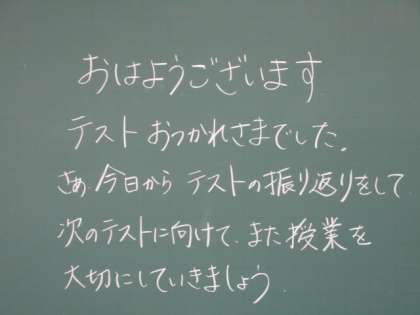 おはようございます
テスト おつかれさまでした。
さぁ 今日から テストの振り返りをして
次のテストに向けて、また授業を
大切にしていきましょう。